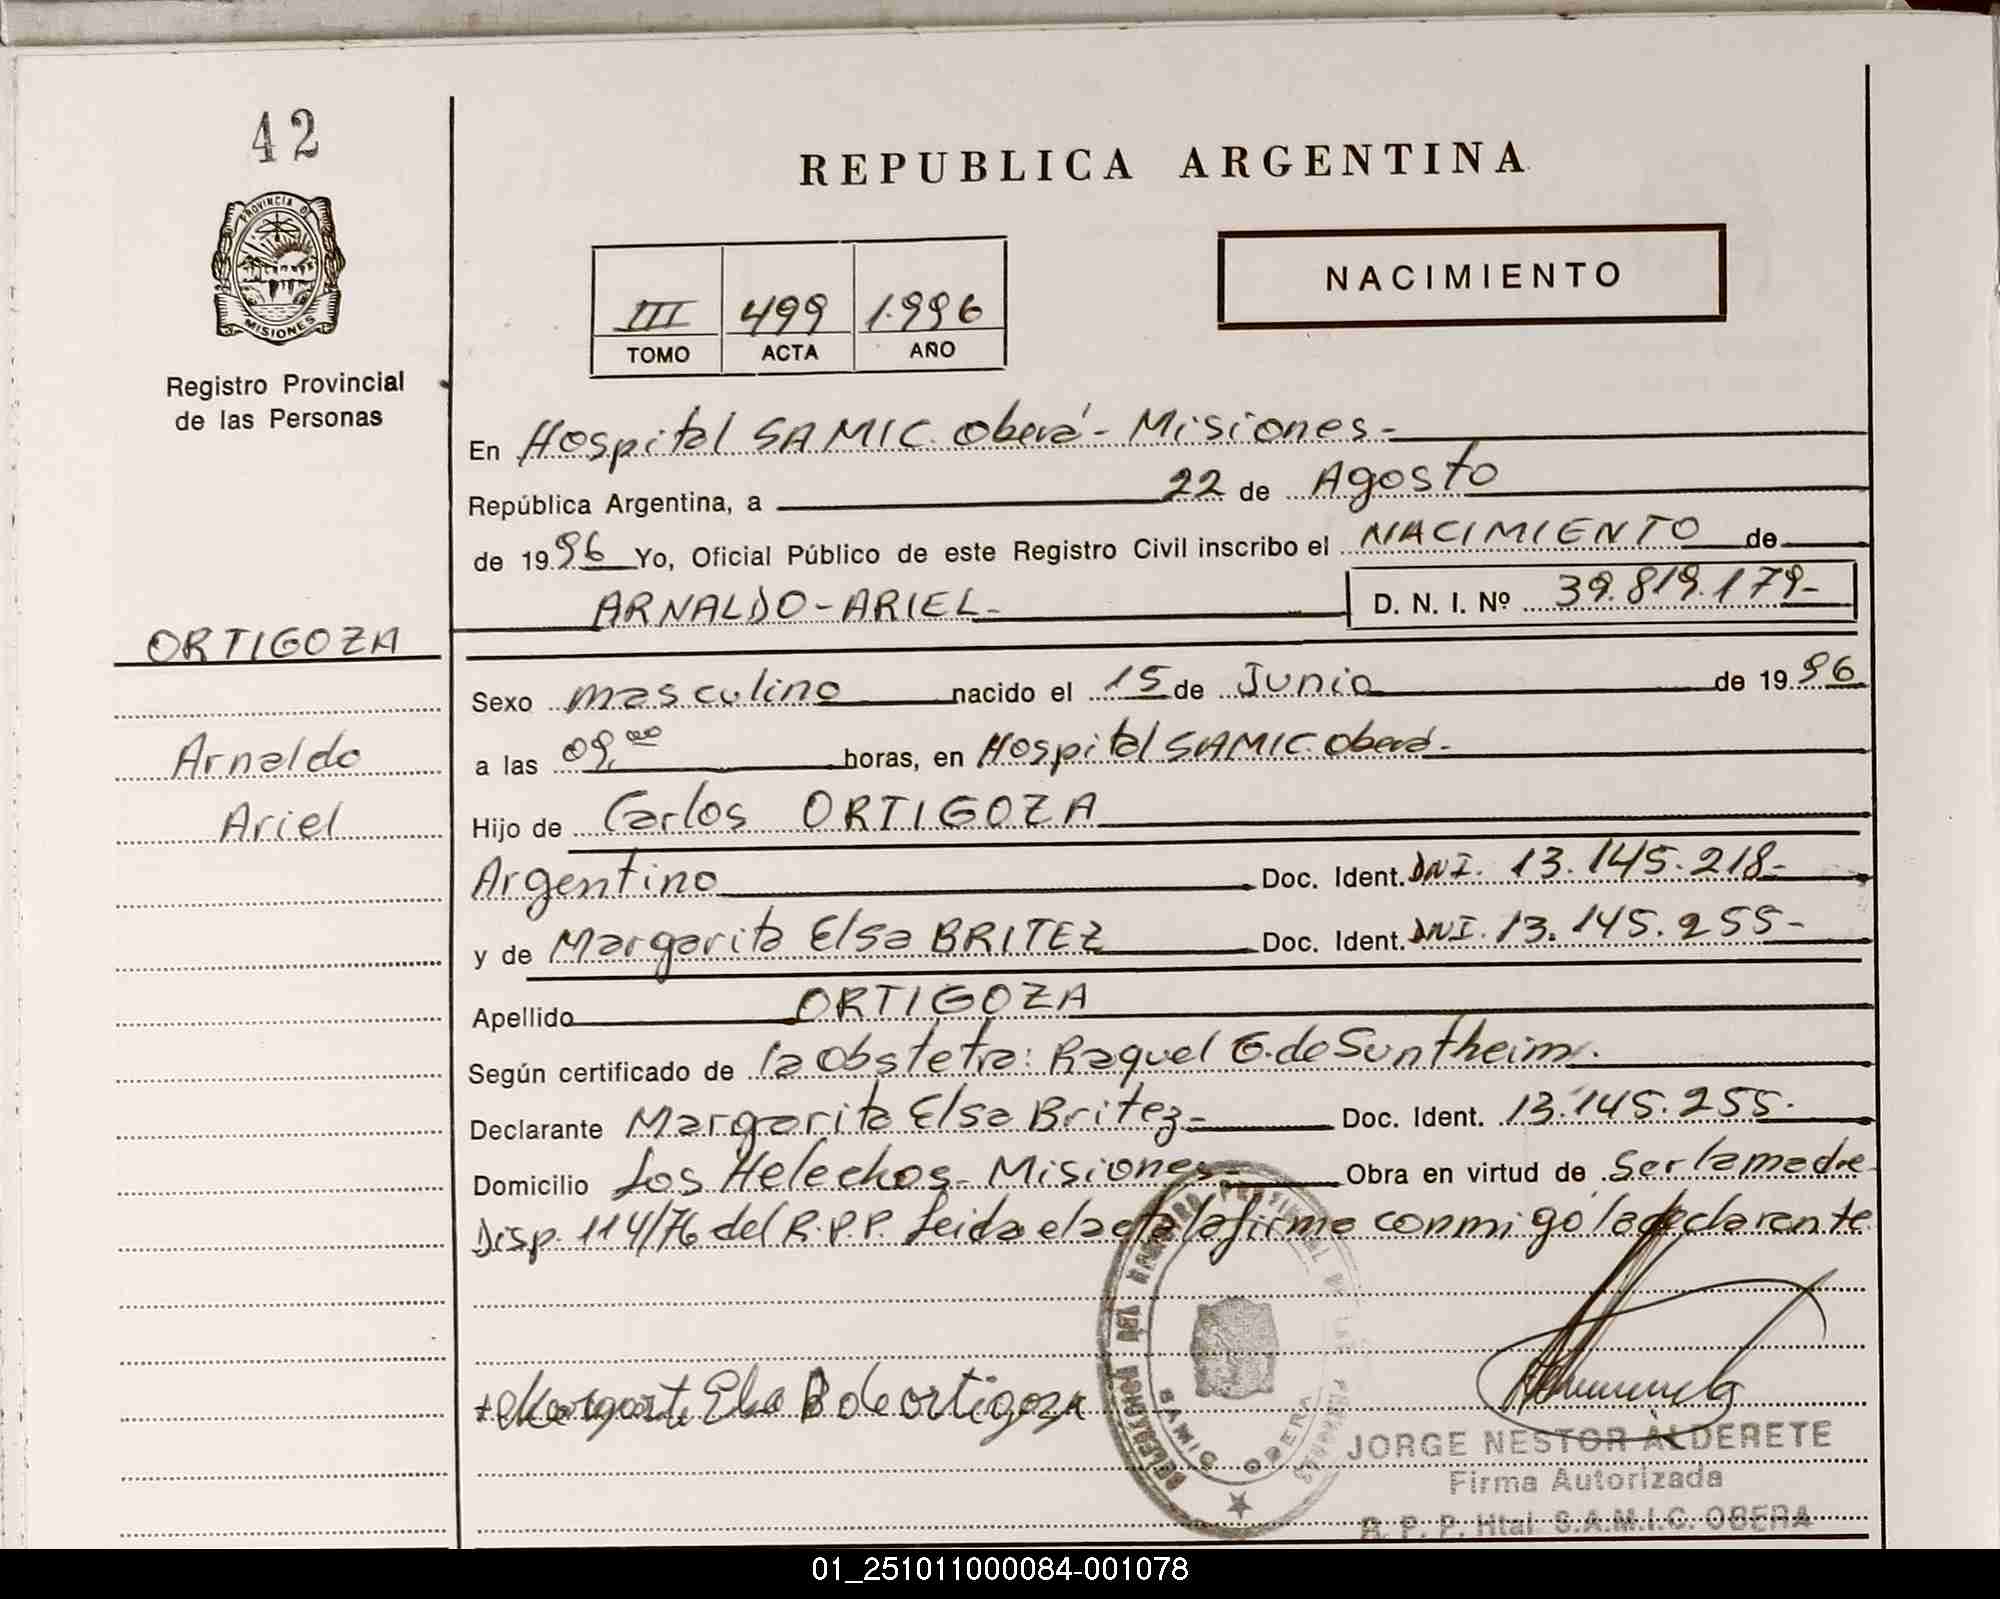 42
PROVINCIA DE
MISIONES
Registro Provincial
de las Personas
ORTIGOZA
Arnaldo
Ariel
REPUBLICA ARGENTINA
NACIMIENTO
III 499 1.996
TOMO ACTA AÑO
En Hospital SAMIC. Oberá - Misiones.-
República Argentina, a 22 de Agosto
de 19 96 Yo, Oficial Público de este Registro Civil inscribo el NACIMIENTO de
ARNALDO-ARIEL- D. N. I. Nº 39.819.179-
Sexo masculino nacido el 15 de Junio de 19 96
a las 09,00 horas, en Hospital SAMIC. Oberá.-
Hijo de Carlos ORTIGOZA
Argentino Doc. Ident. DNI. 13.145.218-
y de Margarita Elsa BRITEZ Doc. Ident. DNI. 13.145.255-
Apellido ORTIGOZA
Según certificado de la obstetra: Raquel G. de Suntheim.
Declarante Margarita Elsa Britez- Doc. Ident. 13.145.255.
Domicilio Los Helechos- Misiones- Obra en virtud de ser la madre
Disp. 114/76 del R.P.P. Leida el acta la firma conmigo la declarante.
DELEGACION DEL REGISTRO PROVINCIAL DE LAS PERSONAS
SAMIC OBERA
JORGE NESTOR ALDERETE
Firma Autorizada
R. P. P. Htal S.A.M.I.C. OBERA
01_251011000084-001078